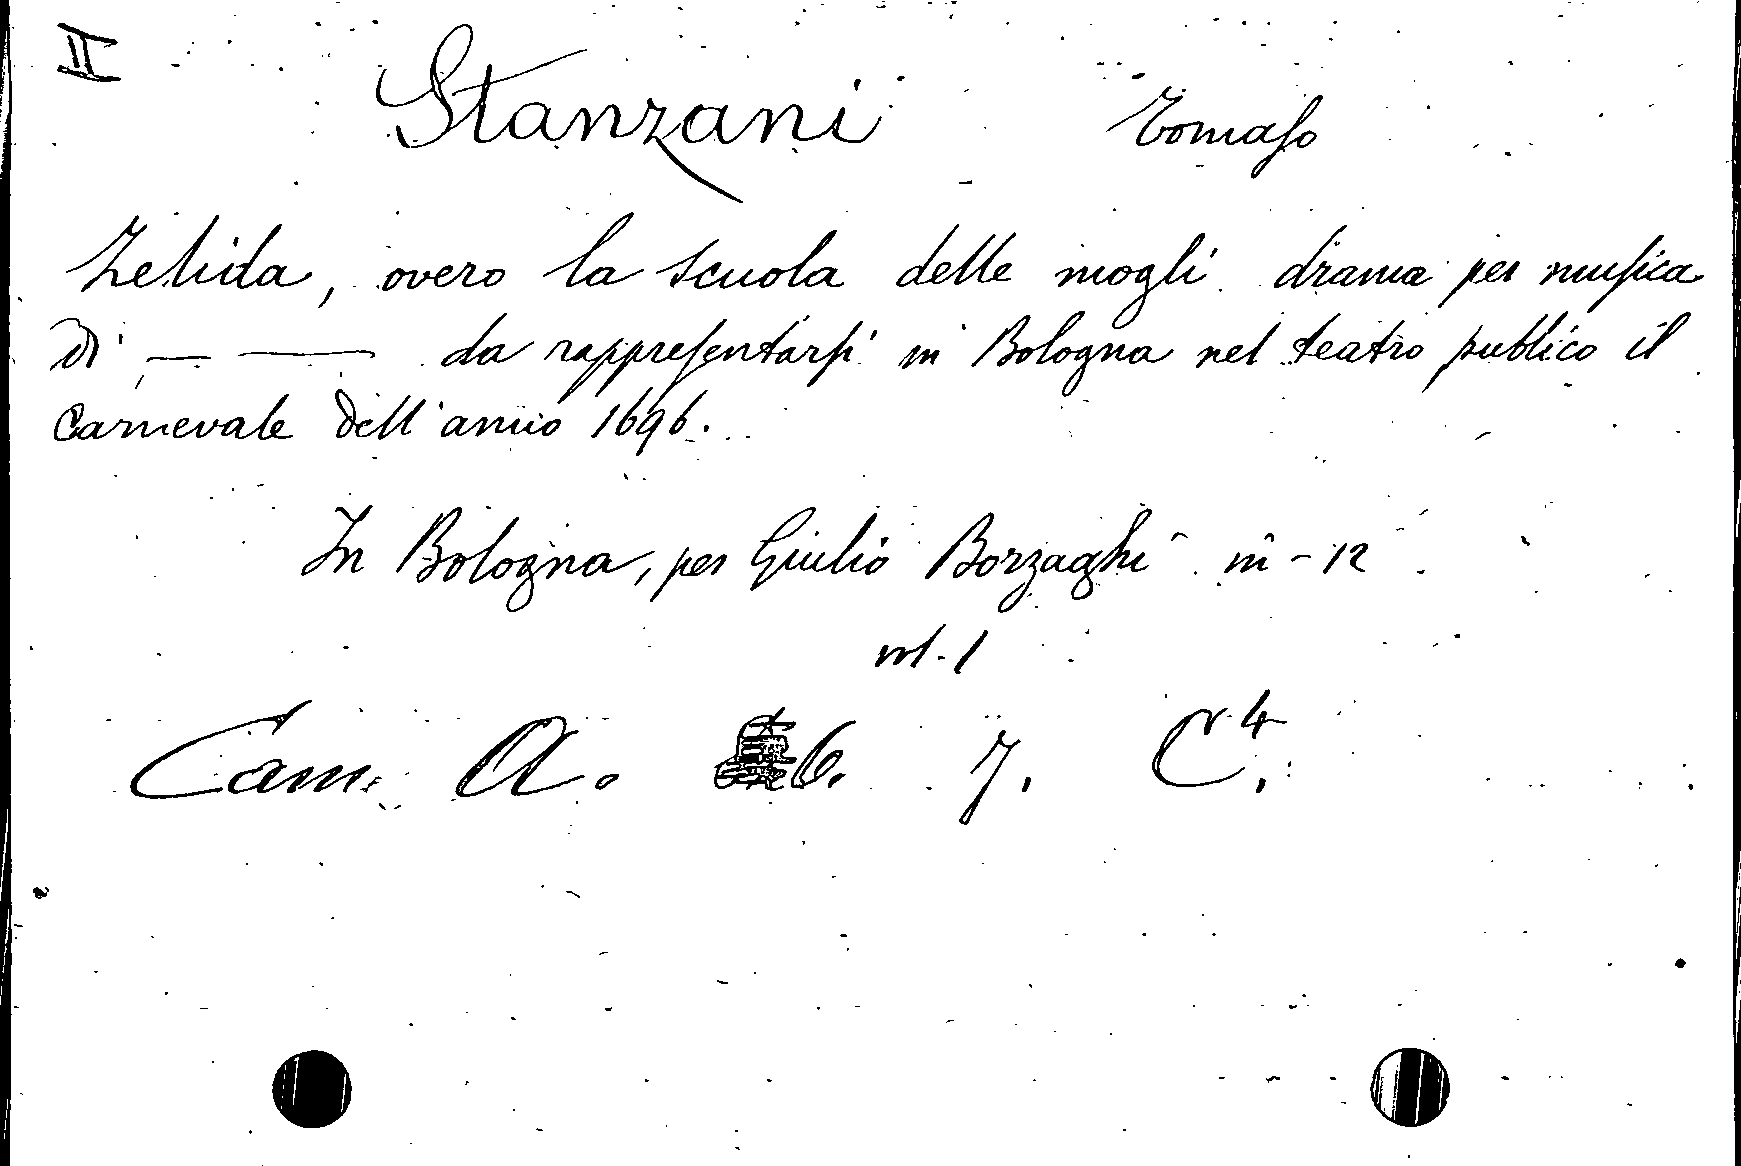 II
Stanzani Tomaso
Zelida, overo la scuola delle mogli drama per musica
di — — da rappresentarsi in Bologna nel teatro publico il
Carnevale dell'anno 1696.
In Bologna, per Giulio Borzaghi in-12
vol. 1
Cam. A. 6. 7. C 4.